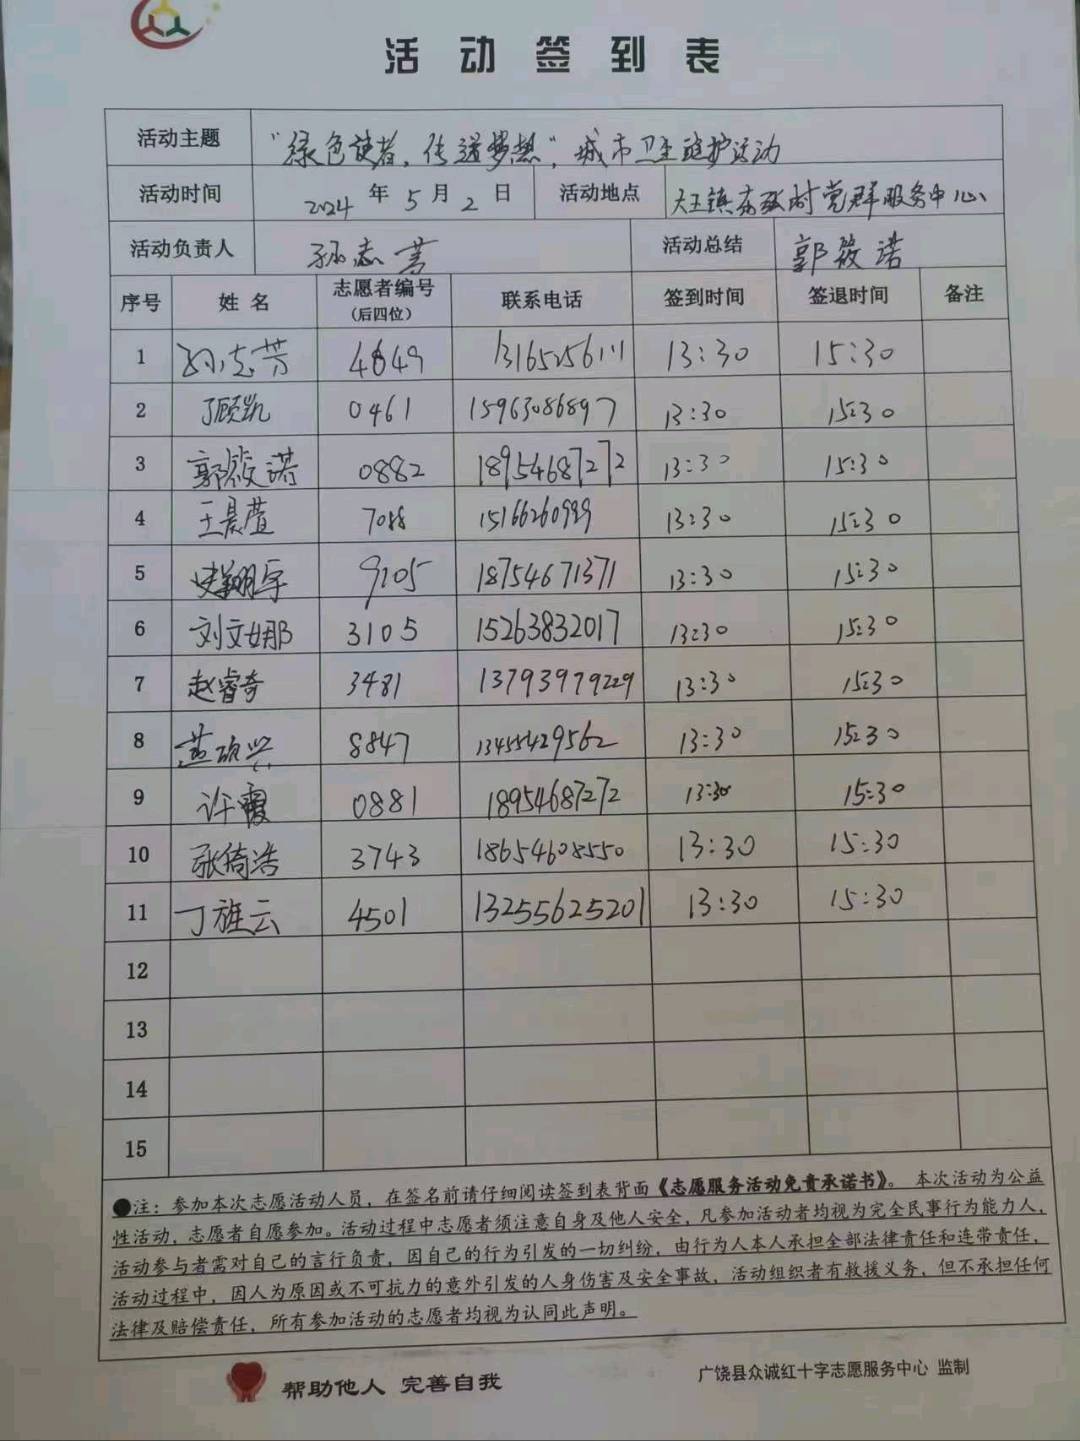 活动签到表
活动主题 "绿色使者,传递梦想",城市卫生监护活动
活动时间 2024年5月2日 活动地点 大王镇东张村党群服务中心
活动负责人 孙志芳 活动总结 郭筱诺
序号 姓名 志愿者编号(后四位) 联系电话 签到时间 签退时间 备注
1 孙志芳 4849 13165256111 13:30 15:30
2 丁顾凯 0461 15963086897 13:30 15:30
3 郭筱诺 0882 18954687272 13:30 15:30
4 王晨萱 15166260999 13:30 15:30
5 9105 18754671371 13:30 15:30
6 刘文娜 3105 15263832017 13:30 15:30
7 赵睿奇 3481 13793979229 13:30 15:30
8 8847 13455429562 13:30 15:30
9 许霞 0881 18954687272 13:30 15:30
10 张倚浩 3743 18654608550 13:30 15:30
11 丁旌云 4501 13255625201 13:30 15:30
12
13
14
15
●注:参加本次志愿活动人员,在签名前请仔细阅读签到表背面《志愿服务活动免责承诺书》。本次活动为公益
性活动,志愿者自愿参加。活动过程中志愿者须注意自身及他人安全,凡参加活动者均视为完全民事行为能力人,
活动参与者需对自己的言行负责,因自己的行为引发的一切纠纷,由行为人本人承担全部法律责任和连带责任,
活动过程中,因人为原因或不可抗力的意外引发的人身伤害及安全事故,活动组织者有救援义务,但不承担任何
法律及赔偿责任,所有参加活动的志愿者均视为认同此声明。
帮助他人 完善自我
广饶县众诚红十字志愿服务中心 监制